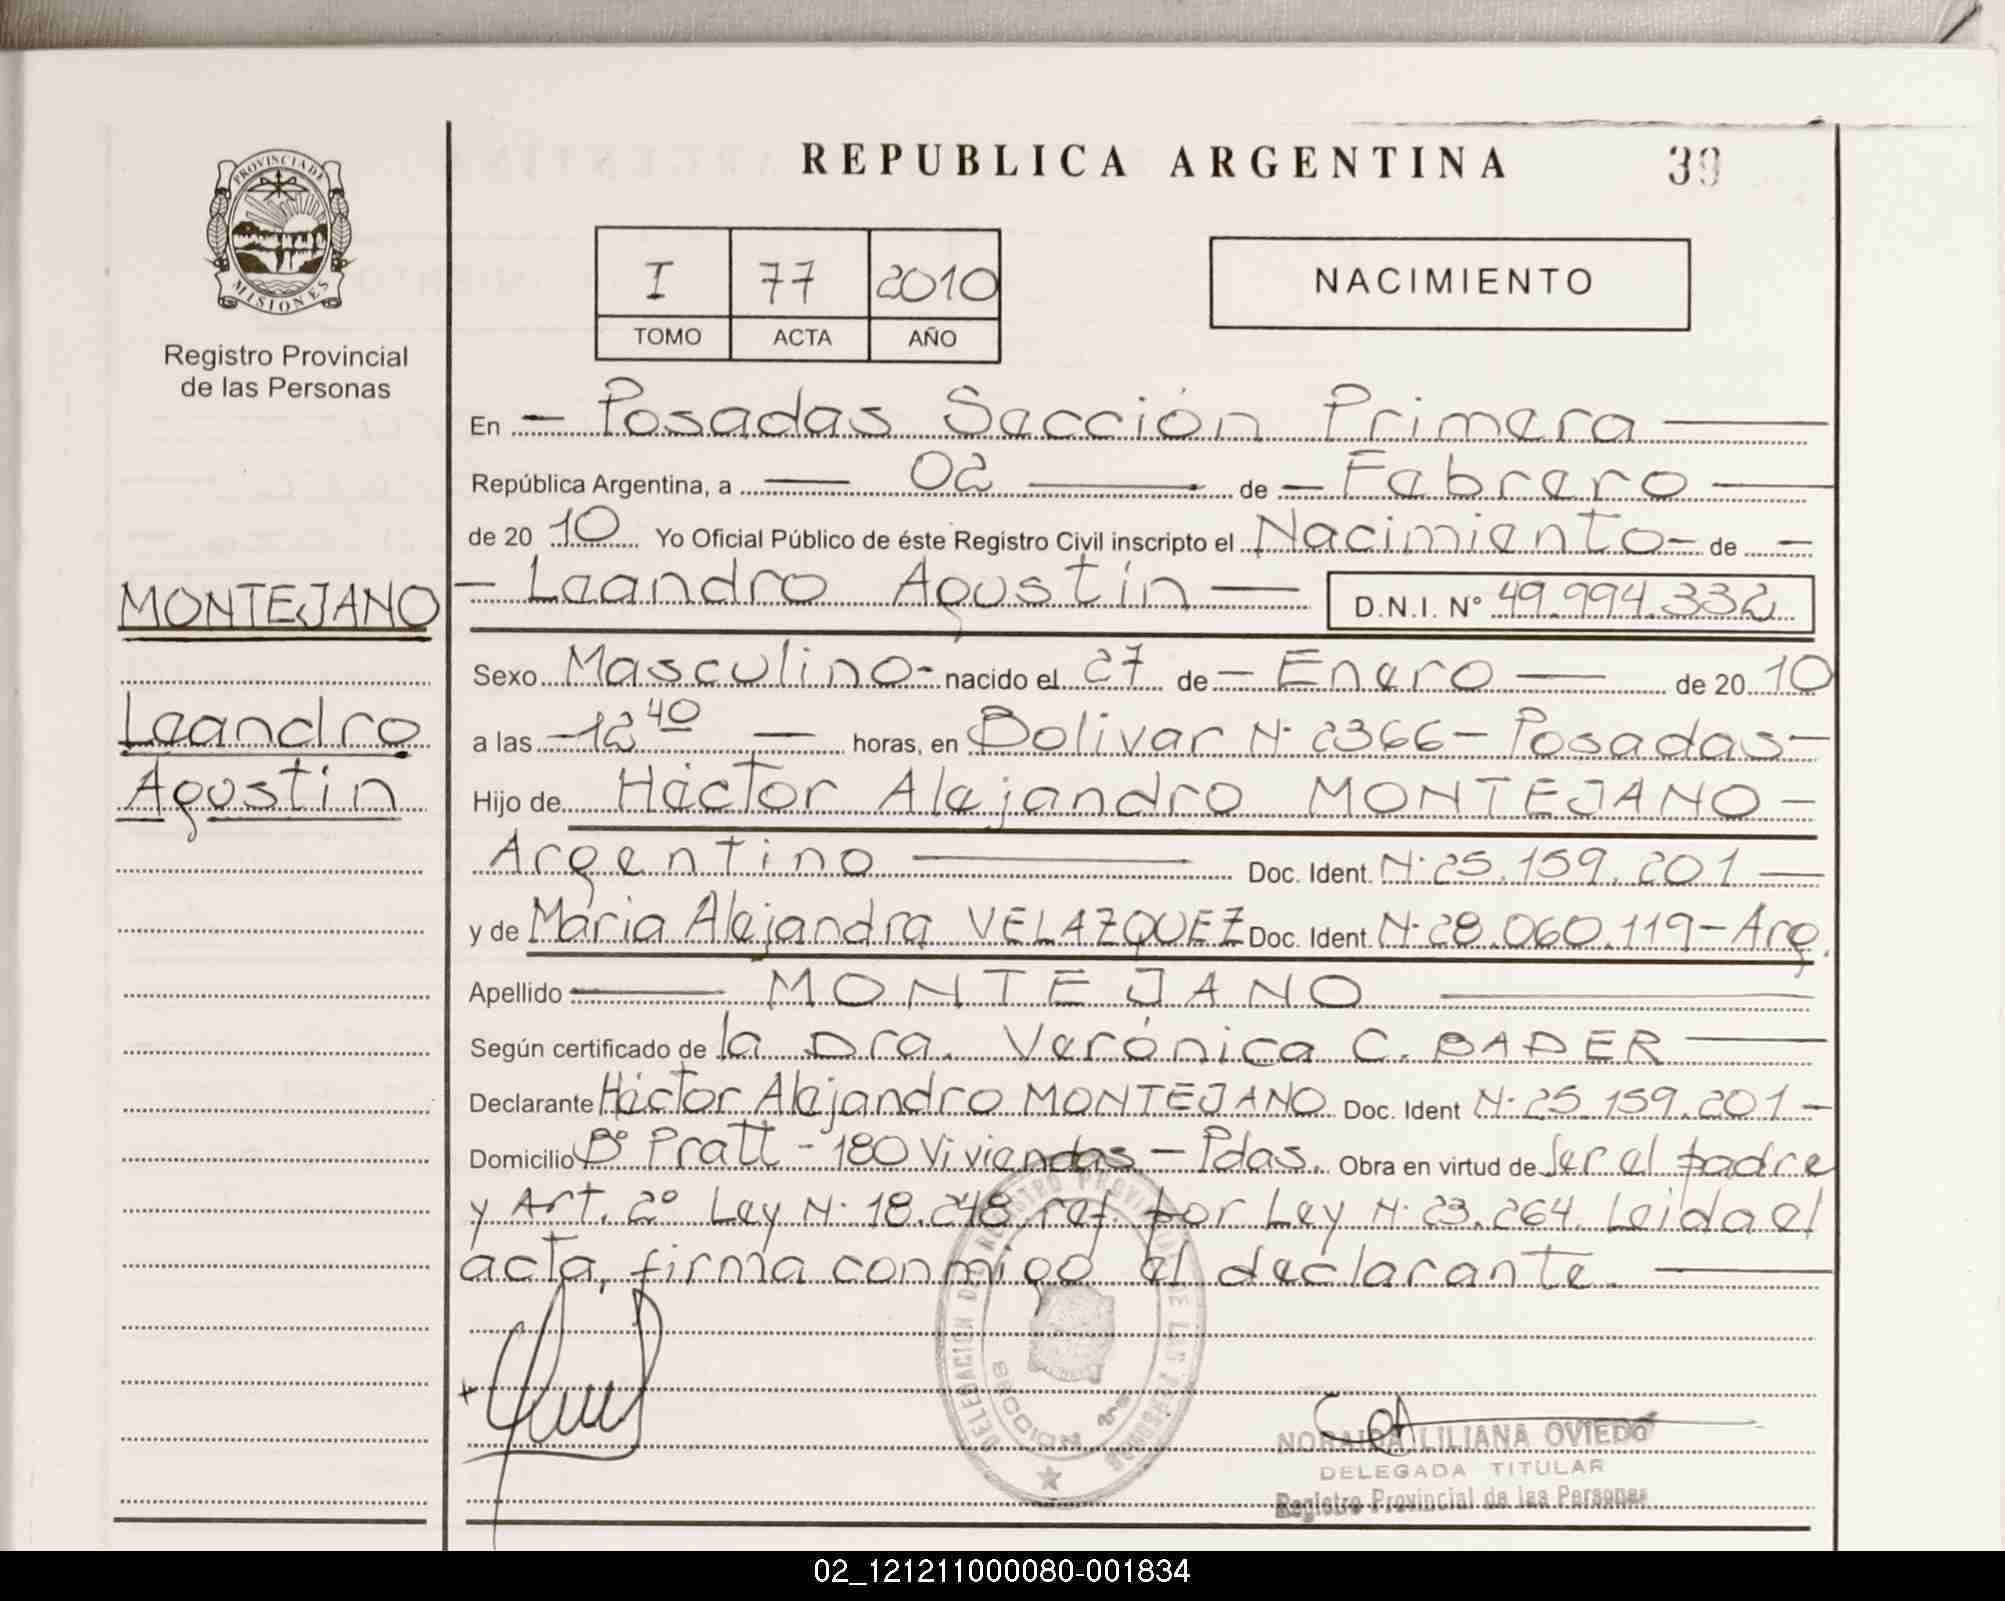 REPUBLICA ARGENTINA
39
PROVINCIA DE
MISIONES
Registro Provincial
de las Personas
I 77 2010
TOMO ACTA AÑO
NACIMIENTO
En - Posadas Sección Primera
República Argentina, a 02 de - Febrero
de 2010 Yo Oficial Público de éste Registro Civil inscripto el Nacimiento - de -
MONTEJANO
- Leandro Agustín - D.N.I. Nº 49.994.332
Sexo Masculino - nacido el 27 de - Enero - de 2010
Leandro
a las - 12 40 - horas, en Bolivar Nº 2366 - Posadas -
Agustín
Hijo de Héctor Alejandro MONTEJANO -
Argentino Doc. Ident. Nº 25.159.201
y de María Alejandra VELAZQUEZ Doc. Ident. Nº 28.060.119 - Arg.
Apellido MONTEJANO
Según certificado de la Dra. Verónica C. BADER
Declarante Héctor Alejandro MONTEJANO Doc. Ident Nº 25.159.201 -
Domicilio Bº Pratt - 180 Viviendas - Pdas. Obra en virtud de Ser el padre
y Art. 2º Ley Nº 18.248 ref. por Ley Nº 23.264. Leida el
acta, firma conmigo el declarante.
DELEGACION DEL REGISTRO PROVINCIAL DE LAS PERSONAS
SECCION
NORAIDA LILIANA OVIEDO
DELEGADA TITULAR
Registro Provincial de las Personas
02_121211000080-001834